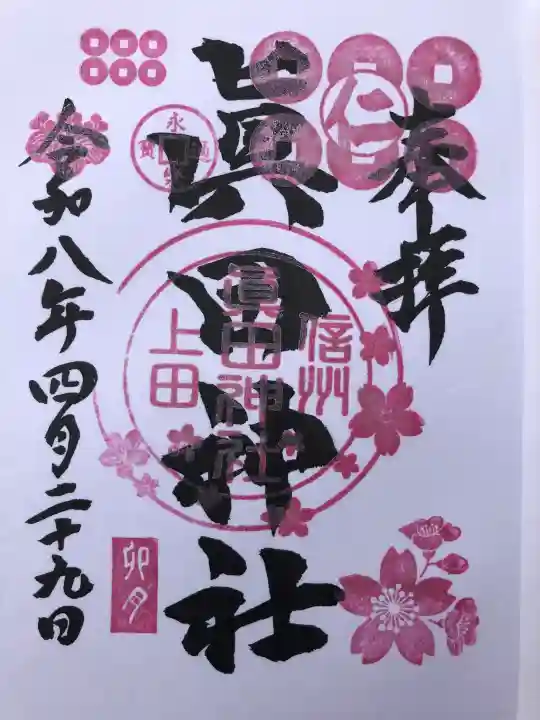 奉拝
仁
眞田神社
信州
眞田神社
上田
永楽通寳
令和八年四月二十九日
卯月